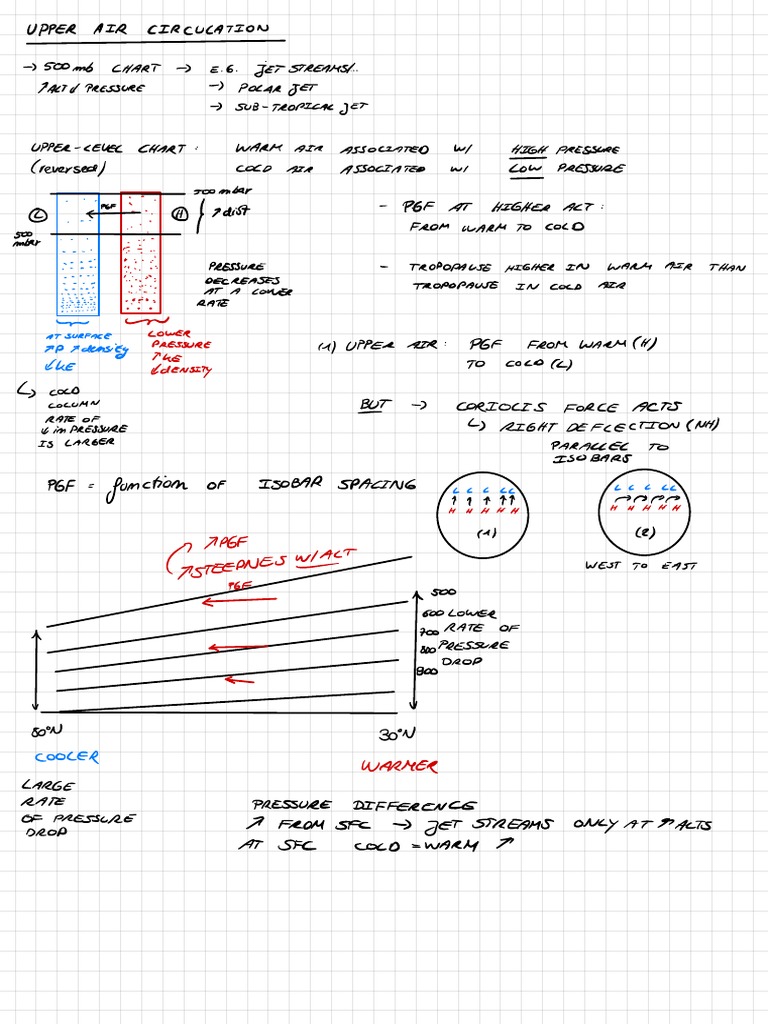 UPPER AIR CIRCULATION
→ 500mb CHART → E.G. JET STREAMS/..
↗ALT↓ PRESSURE → POLAR JET
→ SUB-TROPICAL JET
UPPER-LEVEL CHART: WARM AIR ASSOCIATED W/ HIGH PRESSURE
(reversed) COLD AIR ASSOCIATED W/ LOW PRESSURE
L PGF H
↗ dist
500 mbar
- PGF AT HIGHER ALT:
FROM WARM TO COLD
PRESSURE
DECREASES
AT A LOWER
RATE
- TROPOPAUSE HIGHER IN WARM AIR THAN
TROPOPAUSE IN COLD AIR
AT SURFACE
↗P ↗density
↓KE
LOWER
PRESSURE
↑KE
↓DENSITY
(1) UPPER AIR: PGF FROM WARM (H)
TO COLD (L)
↳ COLD
COLUMN
RATE OF
↓ in PRESSURE
IS LARGER
BUT → CORIOLIS FORCE ACTS
↳ RIGHT DEFLECTION (NH)
PARALLEL TO
ISOBARS
PGF = function OF ISOBAR SPACING
L L L L L
↑ ↑ ↑ ↑ ↑
H H H H H
(1)
L L L L L
H H H H H
(2)
WEST TO EAST
↗PGF
↗STEEPNES W/ALT
PGF
500
600 LOWER
700 RATE OF
800 PRESSURE
900 DROP
80°N 30°N
COOLER WARMER
LARGE
RATE
OF PRESSURE
DROP
PRESSURE DIFFERENCE
↗ FROM SFC → JET STREAMS ONLY AT ↗ ALTS
AT SFC COLD = WARM ↗